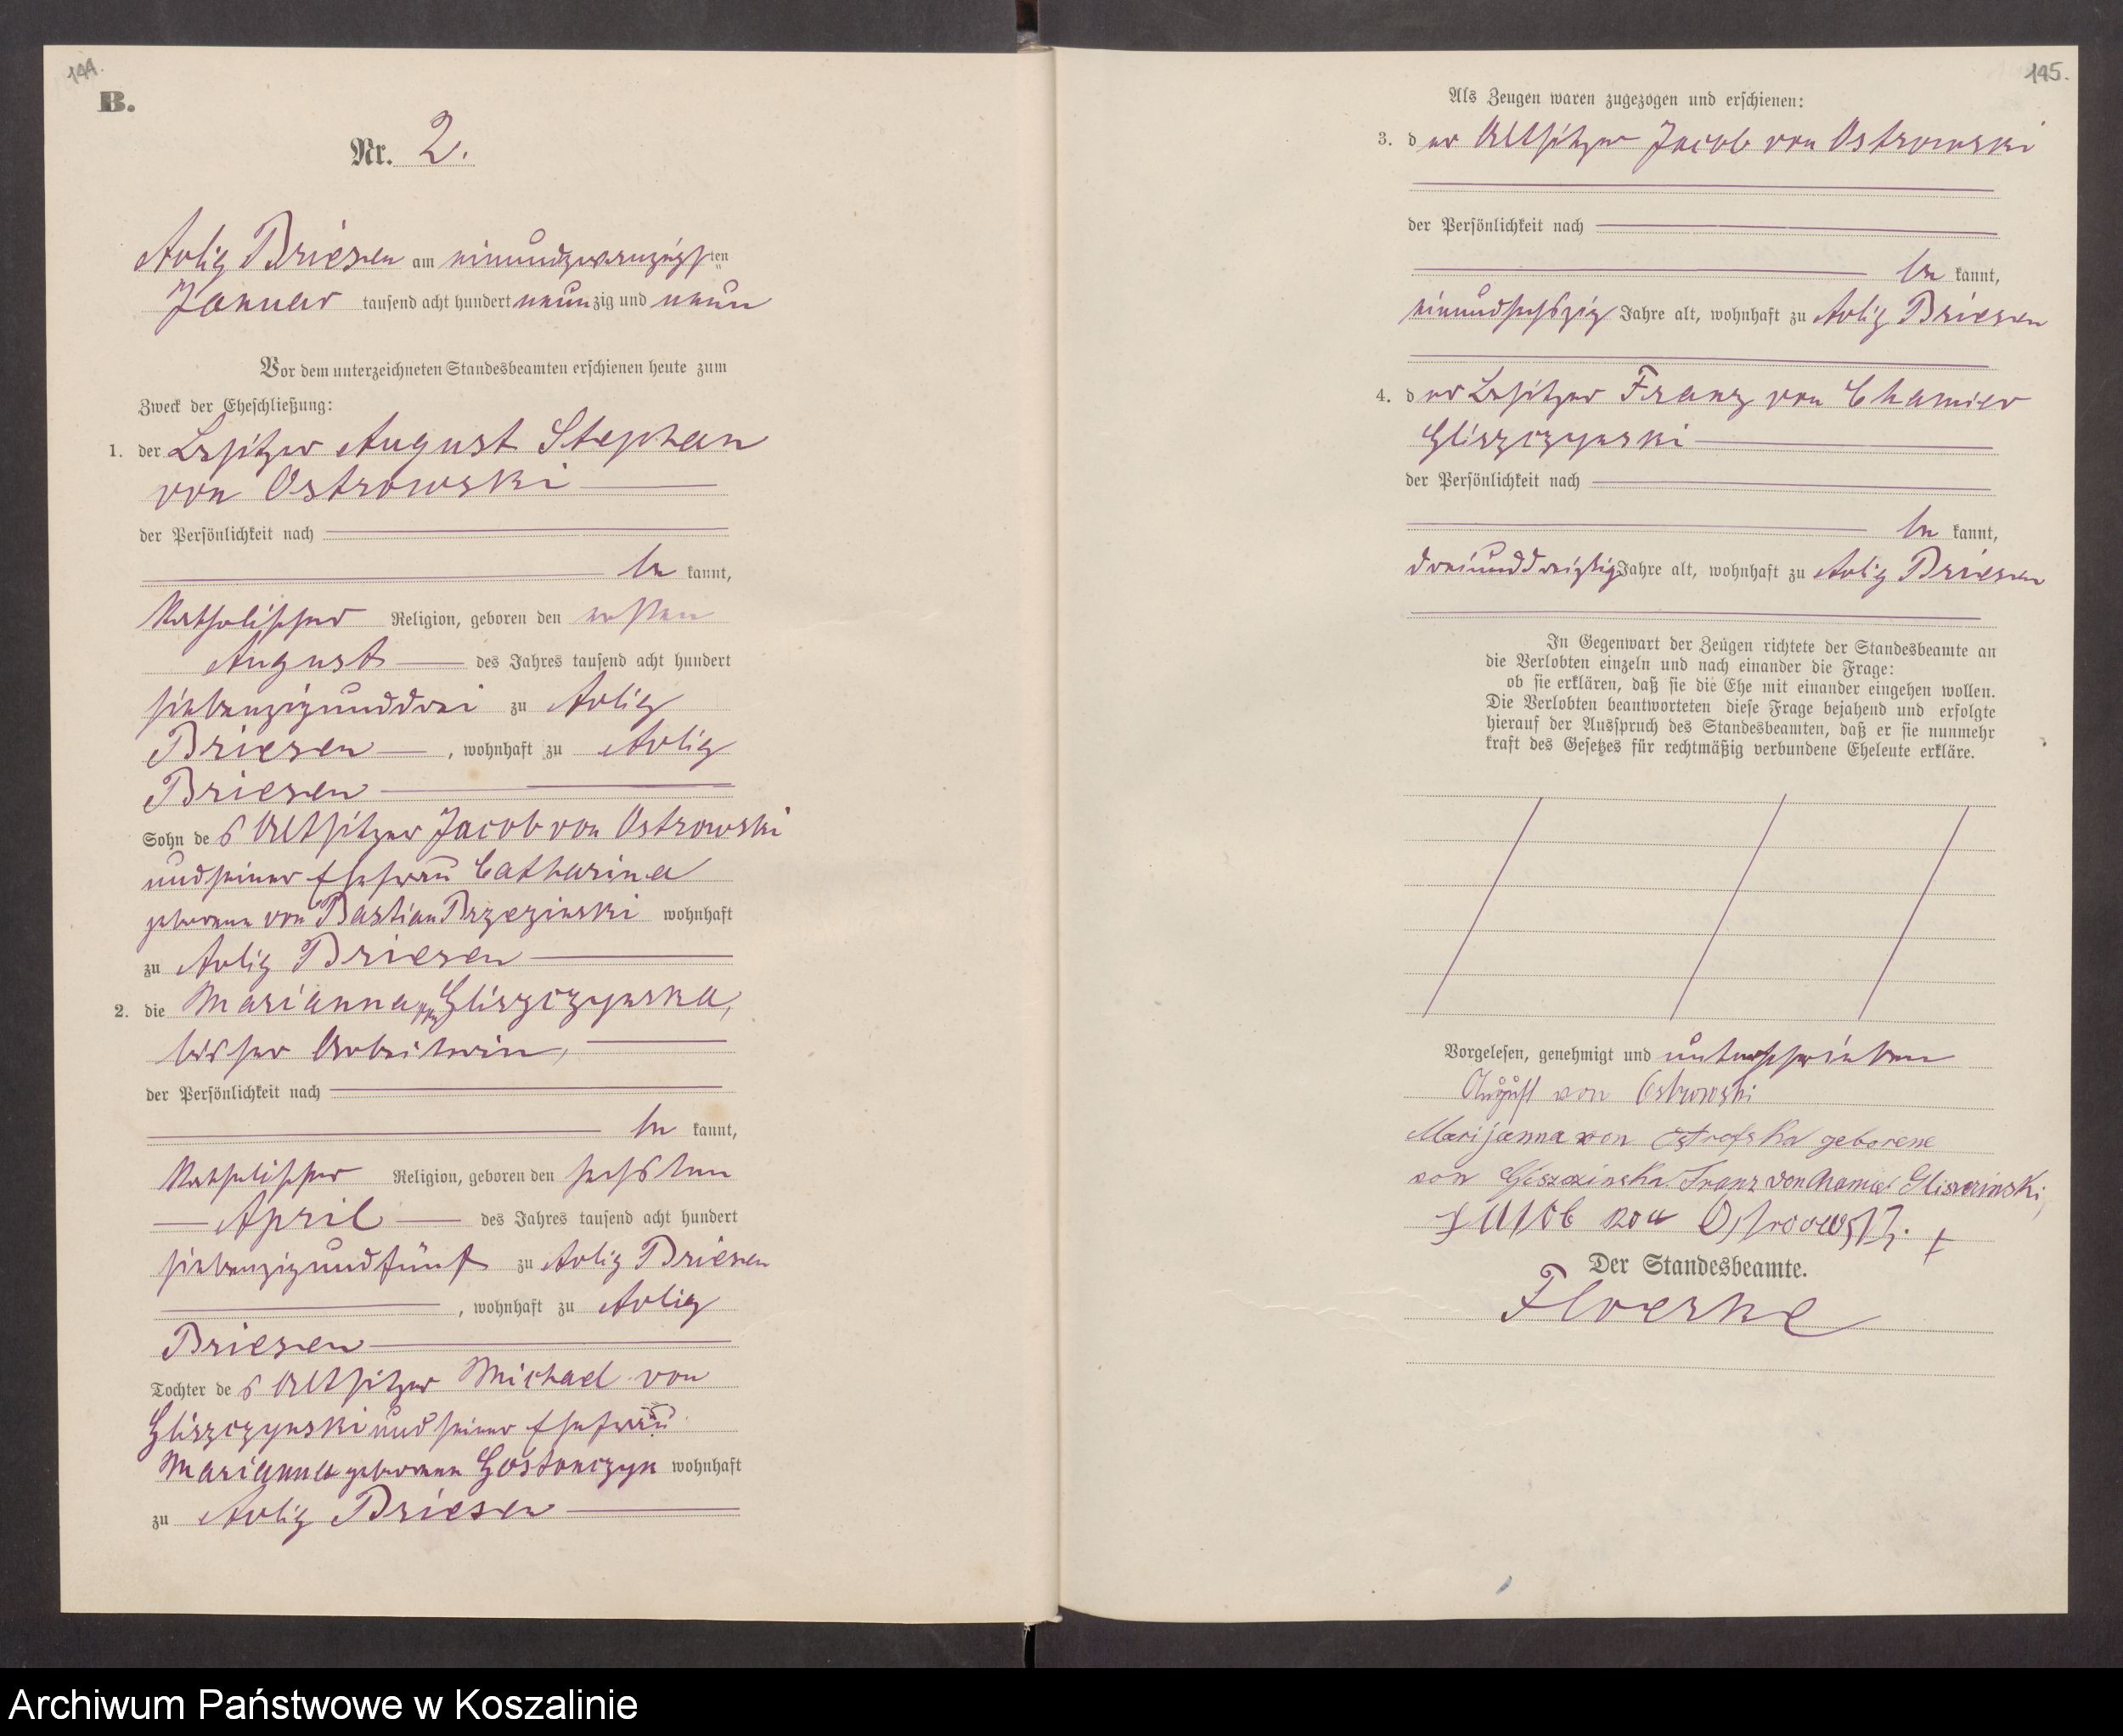 144.
B.
Nr. 2.
Adlig Briesen am einundzwanzigsten
Januar tausend acht hundert neunzig und neun
Vor dem unterzeichneten Standesbeamten erschienen heute zum
Zweck der Eheschließung:
1. der Besitzer August Stephan
von Ostrowski
der Persönlichkeit nach
be kannt,
katholischer Religion, geboren den ersten
August des Jahres tausend acht hundert
siebenzigunddrei zu Adlig
Briesen, wohnhaft zu Adlig
Briesen
Sohn des Altsitzer Jacob von Ostrowski
und seiner Ehefrau Catharina
geborenen von Bastian Brzezinski wohnhaft
zu Adlig Briesen
2. die Marianna von Gliszczynska,
bisher Arbeiterin,
der Persönlichkeit nach
be kannt,
katholischer Religion, geboren den sechsten
April des Jahres tausend acht hundert
siebenzigundfünf zu Adlig Briesen
, wohnhaft zu Adlig
Briesen
Tochter des Altsitzer Michael von
Gliszczynski und seiner Ehefrau
Marianna geborenen Gostonczyn wohnhaft
zu Adlig Briesen
145.
Als Zeugen waren zugezogen und erschienen:
3. der Altsitzer Jacob von Ostrowski
der Persönlichkeit nach
be kannt,
einundsechszig Jahre alt, wohnhaft zu Adlig Briesen
4. der Besitzer Franz von Chamier
Gliszczynski
der Persönlichkeit nach
be kannt,
dreiunddreißig Jahre alt, wohnhaft zu Adlig Briesen
In Gegenwart der Zeugen richtete der Standesbeamte an
die Verlobten einzeln und nach einander die Frage:
ob sie erklären, daß sie die Ehe mit einander eingehen wollen.
Die Verlobten beantworteten diese Frage bejahend und erfolgte
hierauf der Ausspruch des Standesbeamten, daß er sie nunmehr
kraft des Gesetzes für rechtmäßig verbundene Eheleute erkläre.
Vorgelesen, genehmigt und unterschrieben
August von Ostrowski
Marijanna von Ostrofska geborene
von Franz von Chamier
von
Der Standesbeamte.
Floeske
Archiwum Państwowe w Koszalinie